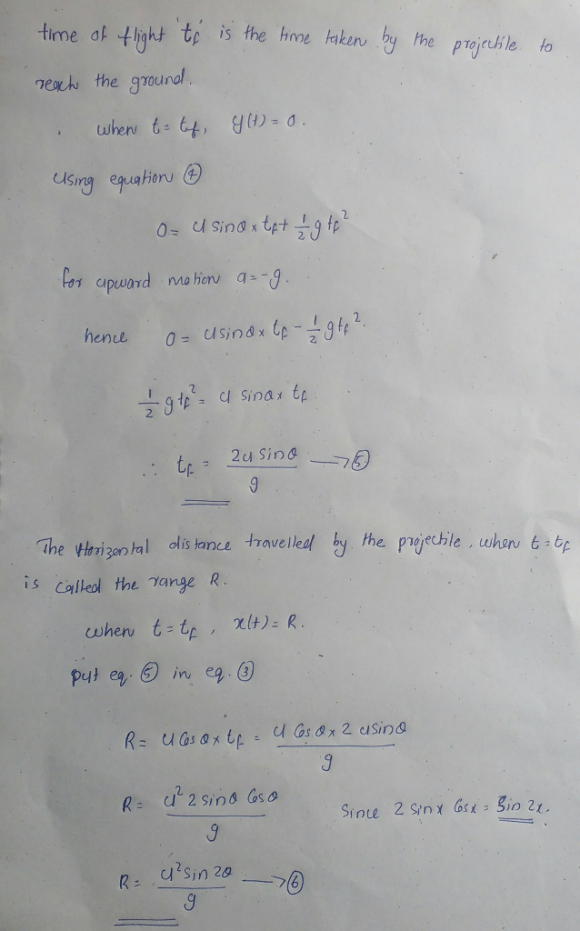 time of flight 'tf' is the time taken by the projectile to
reach the ground.
when t = tf, y(t) = 0.
Using equation ④
0 = u sinθ x tf + 1/2 g tf²
for upward motion a = -g.
hence 0 = u sinθ x tf - 1/2 g tf².
1/2 g tf² = u sinθ x tf
∴ tf = 2u sinθ / g → ⑤
The Horizontal distance travelled by the projectile, when t = tf
is called the range R.
when t = tf, x(t) = R.
put eq. ⑤ in eq. ③
R = u Cosθ x tf = u Cosθ x 2 u sinθ / g
R = u² 2 sinθ Cosθ / g Since 2 sinx Cosx = Sin 2x.
R = u² sin 2θ / g → ⑥